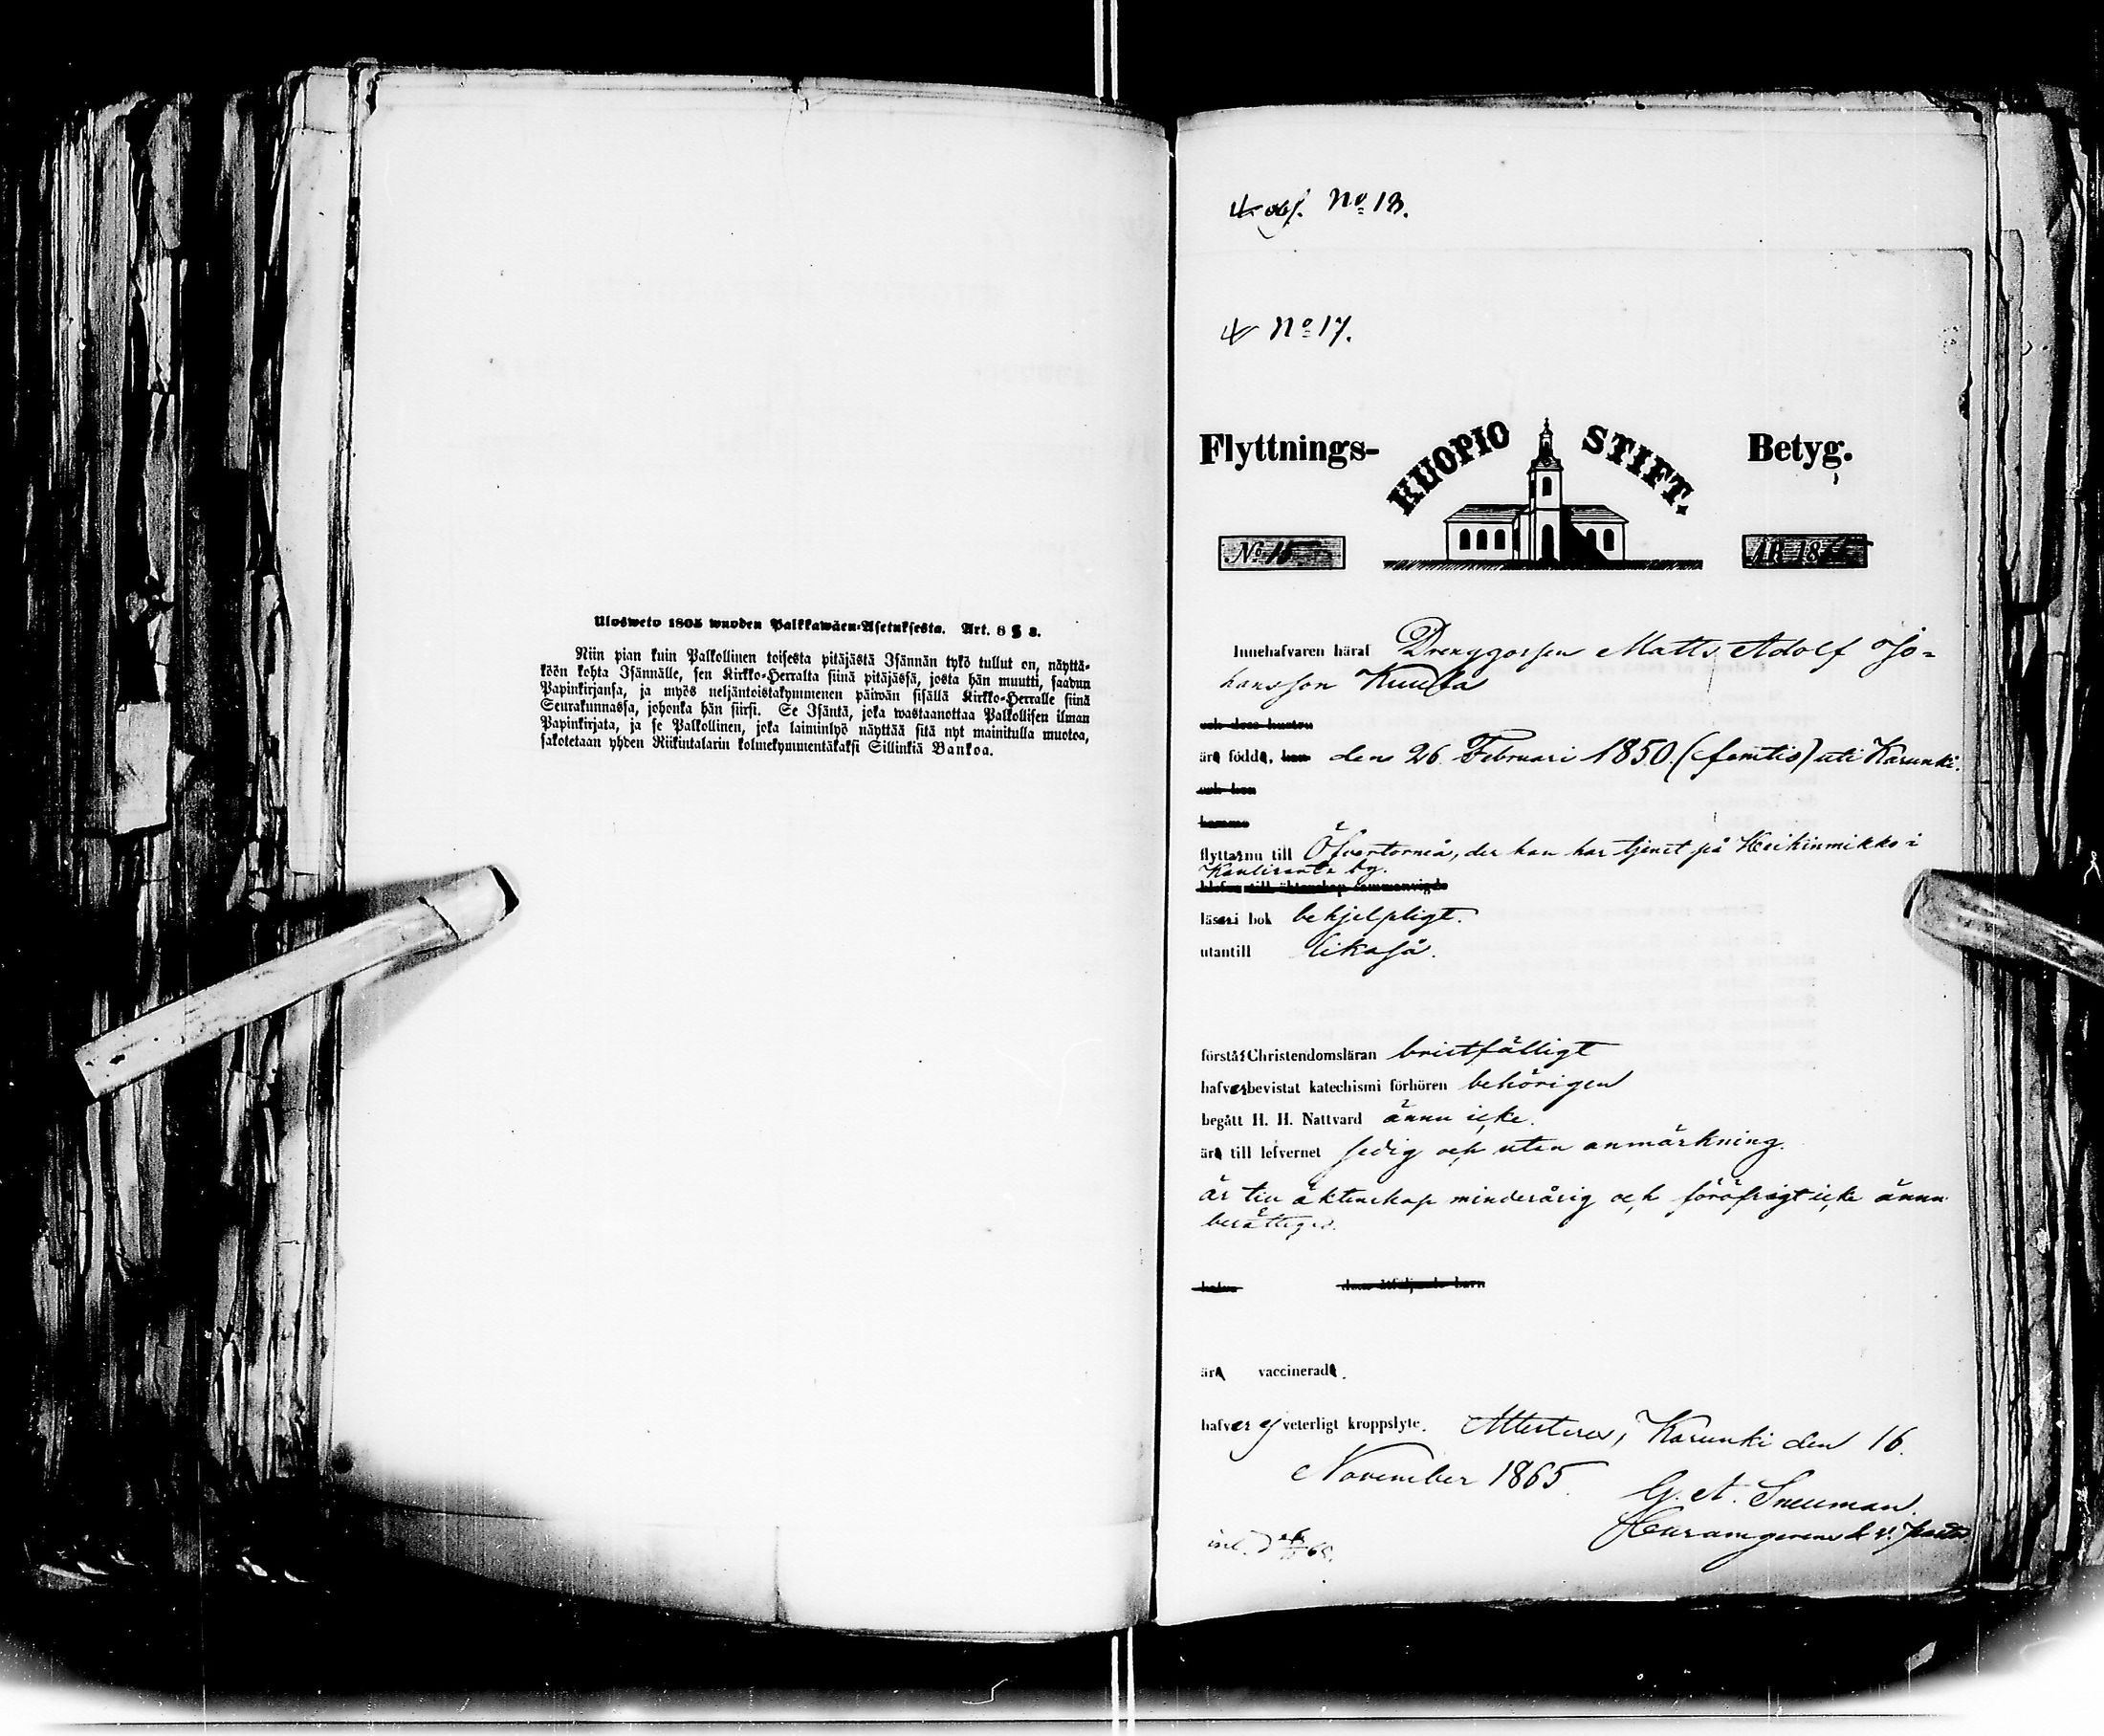 Ulosweto 1805 wuoden Palkkawäen-Asetuksesta. Art. 8 § 3.
Niin pian kuin Palkollinen toisesta pitäjästä Isännän tykö tullut on, näyttä-
köön kohta Isännälle, sen Kirkko-Herralta siinä pitäjässä, josta hän muutti, saadun
Papinkirjansa, ja myös neljäntoistakymmenen päiwän sisällä Kirkko-Herralle siinä
Seurakunnassa, johonka hän siirsi. Se Isäntä, joka wastaanottaa Palkollisen ilman
Papinkirjata, ja se Palkollinen, joka laiminlyö näyttää sitä nyt mainitulla muotoa,
sakotetaan yhden Riikintalarin kolmekymmentäkaksi Sillinkiä Bankoa.
No 18.
No 17.
Flyttnings- KUOPIO STIFT. Betyg.
No 15 ÅR 18
Innehafvaren häraf Drenggossen Matts Adolf Jo-
hansson
och dess hustru
är född, han den 26 Februari 1850. (femtio) uti Karunki.
och hon
hemma
flyttar nu till Öfvertorneå, der han har tjenst på Heikinmikko i
Kauliranta by.
blefvo till äktenskap sammanvigde
läser i bok behjelpligt.
utantill likaså.
förstår Christendomsläran bristfälligt
hafver bevistat katechismi förhören behörigen
begått H. H. Nattvard ännu icke.
är till lefvernet sedig och utan anmärkning.
är till äktenskap minderårig och föröfrigt icke ännu
berättigad.
hafva dem åtföljande barn
är vaccinerad.
hafver ej veterligt kroppslyte. Attesteras, Karunki den 16.
November 1865.
G. A. Sneuman.